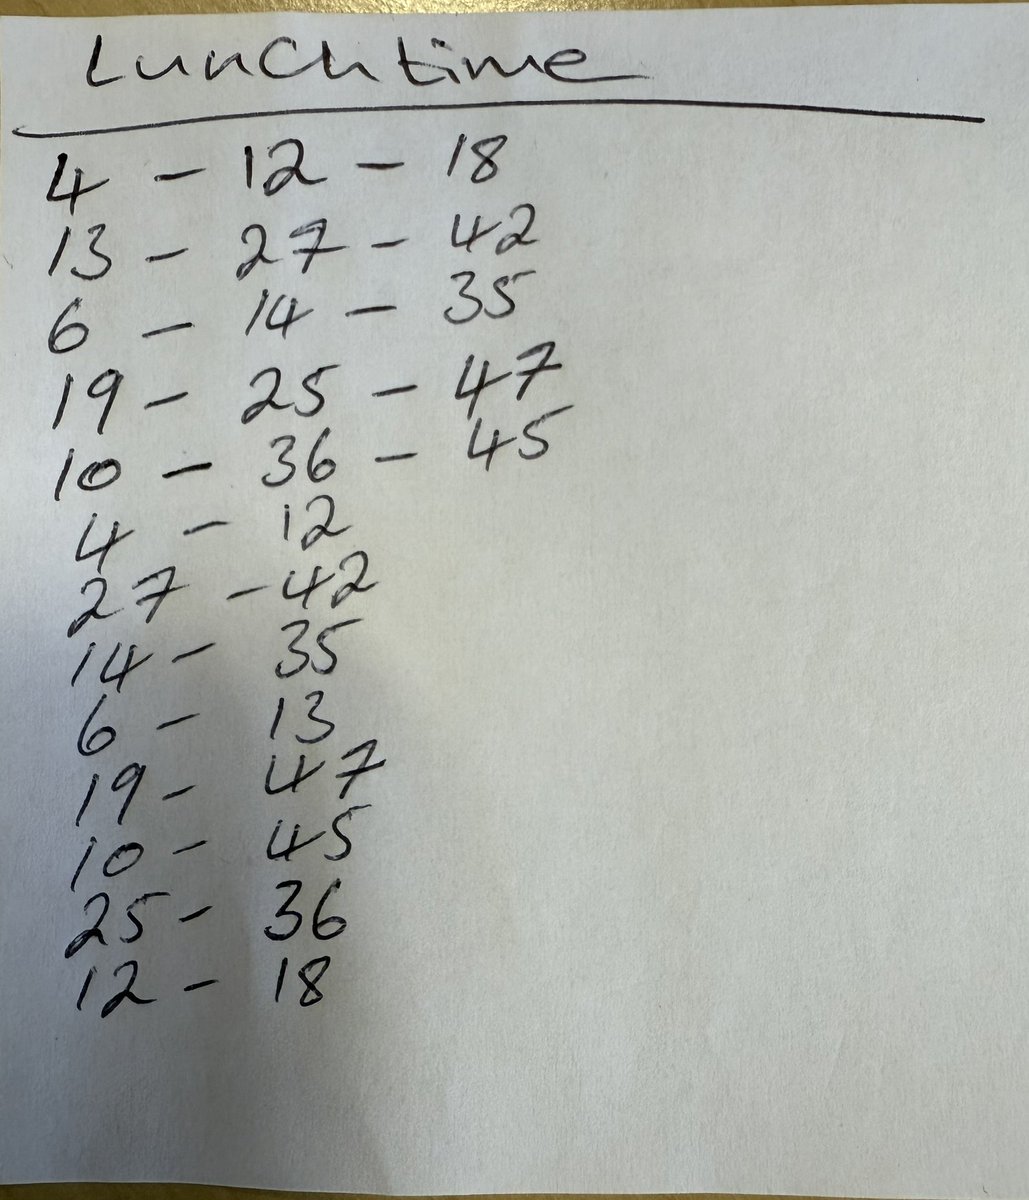 Lunchtime
4 - 12 - 18
13 - 27 - 42
6 - 14 - 35
19 - 25 - 47
10 - 36 - 45
4 - 12
27 - 42
14 - 35
6 - 13
19 - 47
10 - 45
25 - 36
12 - 18